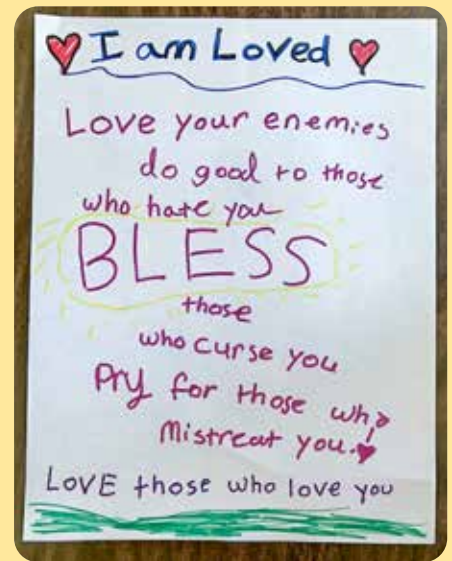 I am Loved
Love your enemies
do good to those
who hate you
BLESS
those
who curse you
Pry for those who
Mistreat you.
LOVE those who love you